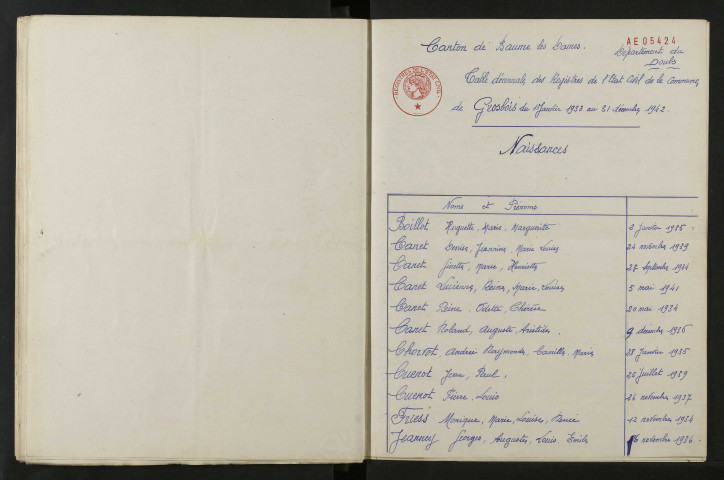 Canton de Baume les Dames.
AE05424
Département du
Doubs
Table décennale des Registres de l'Etat Civil de la Commune
REGISTRES DE L'ETAT CIVIL
de Grosbois du 1er Janvier 1933 au 31 décembre 1942.
Naissances
Noms et Prénoms
Boillot Huguette, Marie, Marguerite 2 Janvier 1935
Canet Denise, Jeannine, Marie Louise 24 novembre 1939
Canet Ginette, Marie, Henriette 27 Septembre 1934
Canet Lucienne, Reine, Marie, Louise 5 mai 1941
Canet Reine, Odette, Thérèse 20 mai 1934
Canet Roland, Auguste, Aristide. 9 décembre 1936
Chorvot Andrée Raymonde, Camille, Marie 28 Janvier 1935
Cuenot Jean, Paul. 25 Juillet 1939
Cuenot Pierre, Louis 26 novembre 1937
Friess Monique, Marie, Louise, Renée 12 novembre 1934
Jeanney Georges, Auguste, Louis, Emile 16 novembre 1936